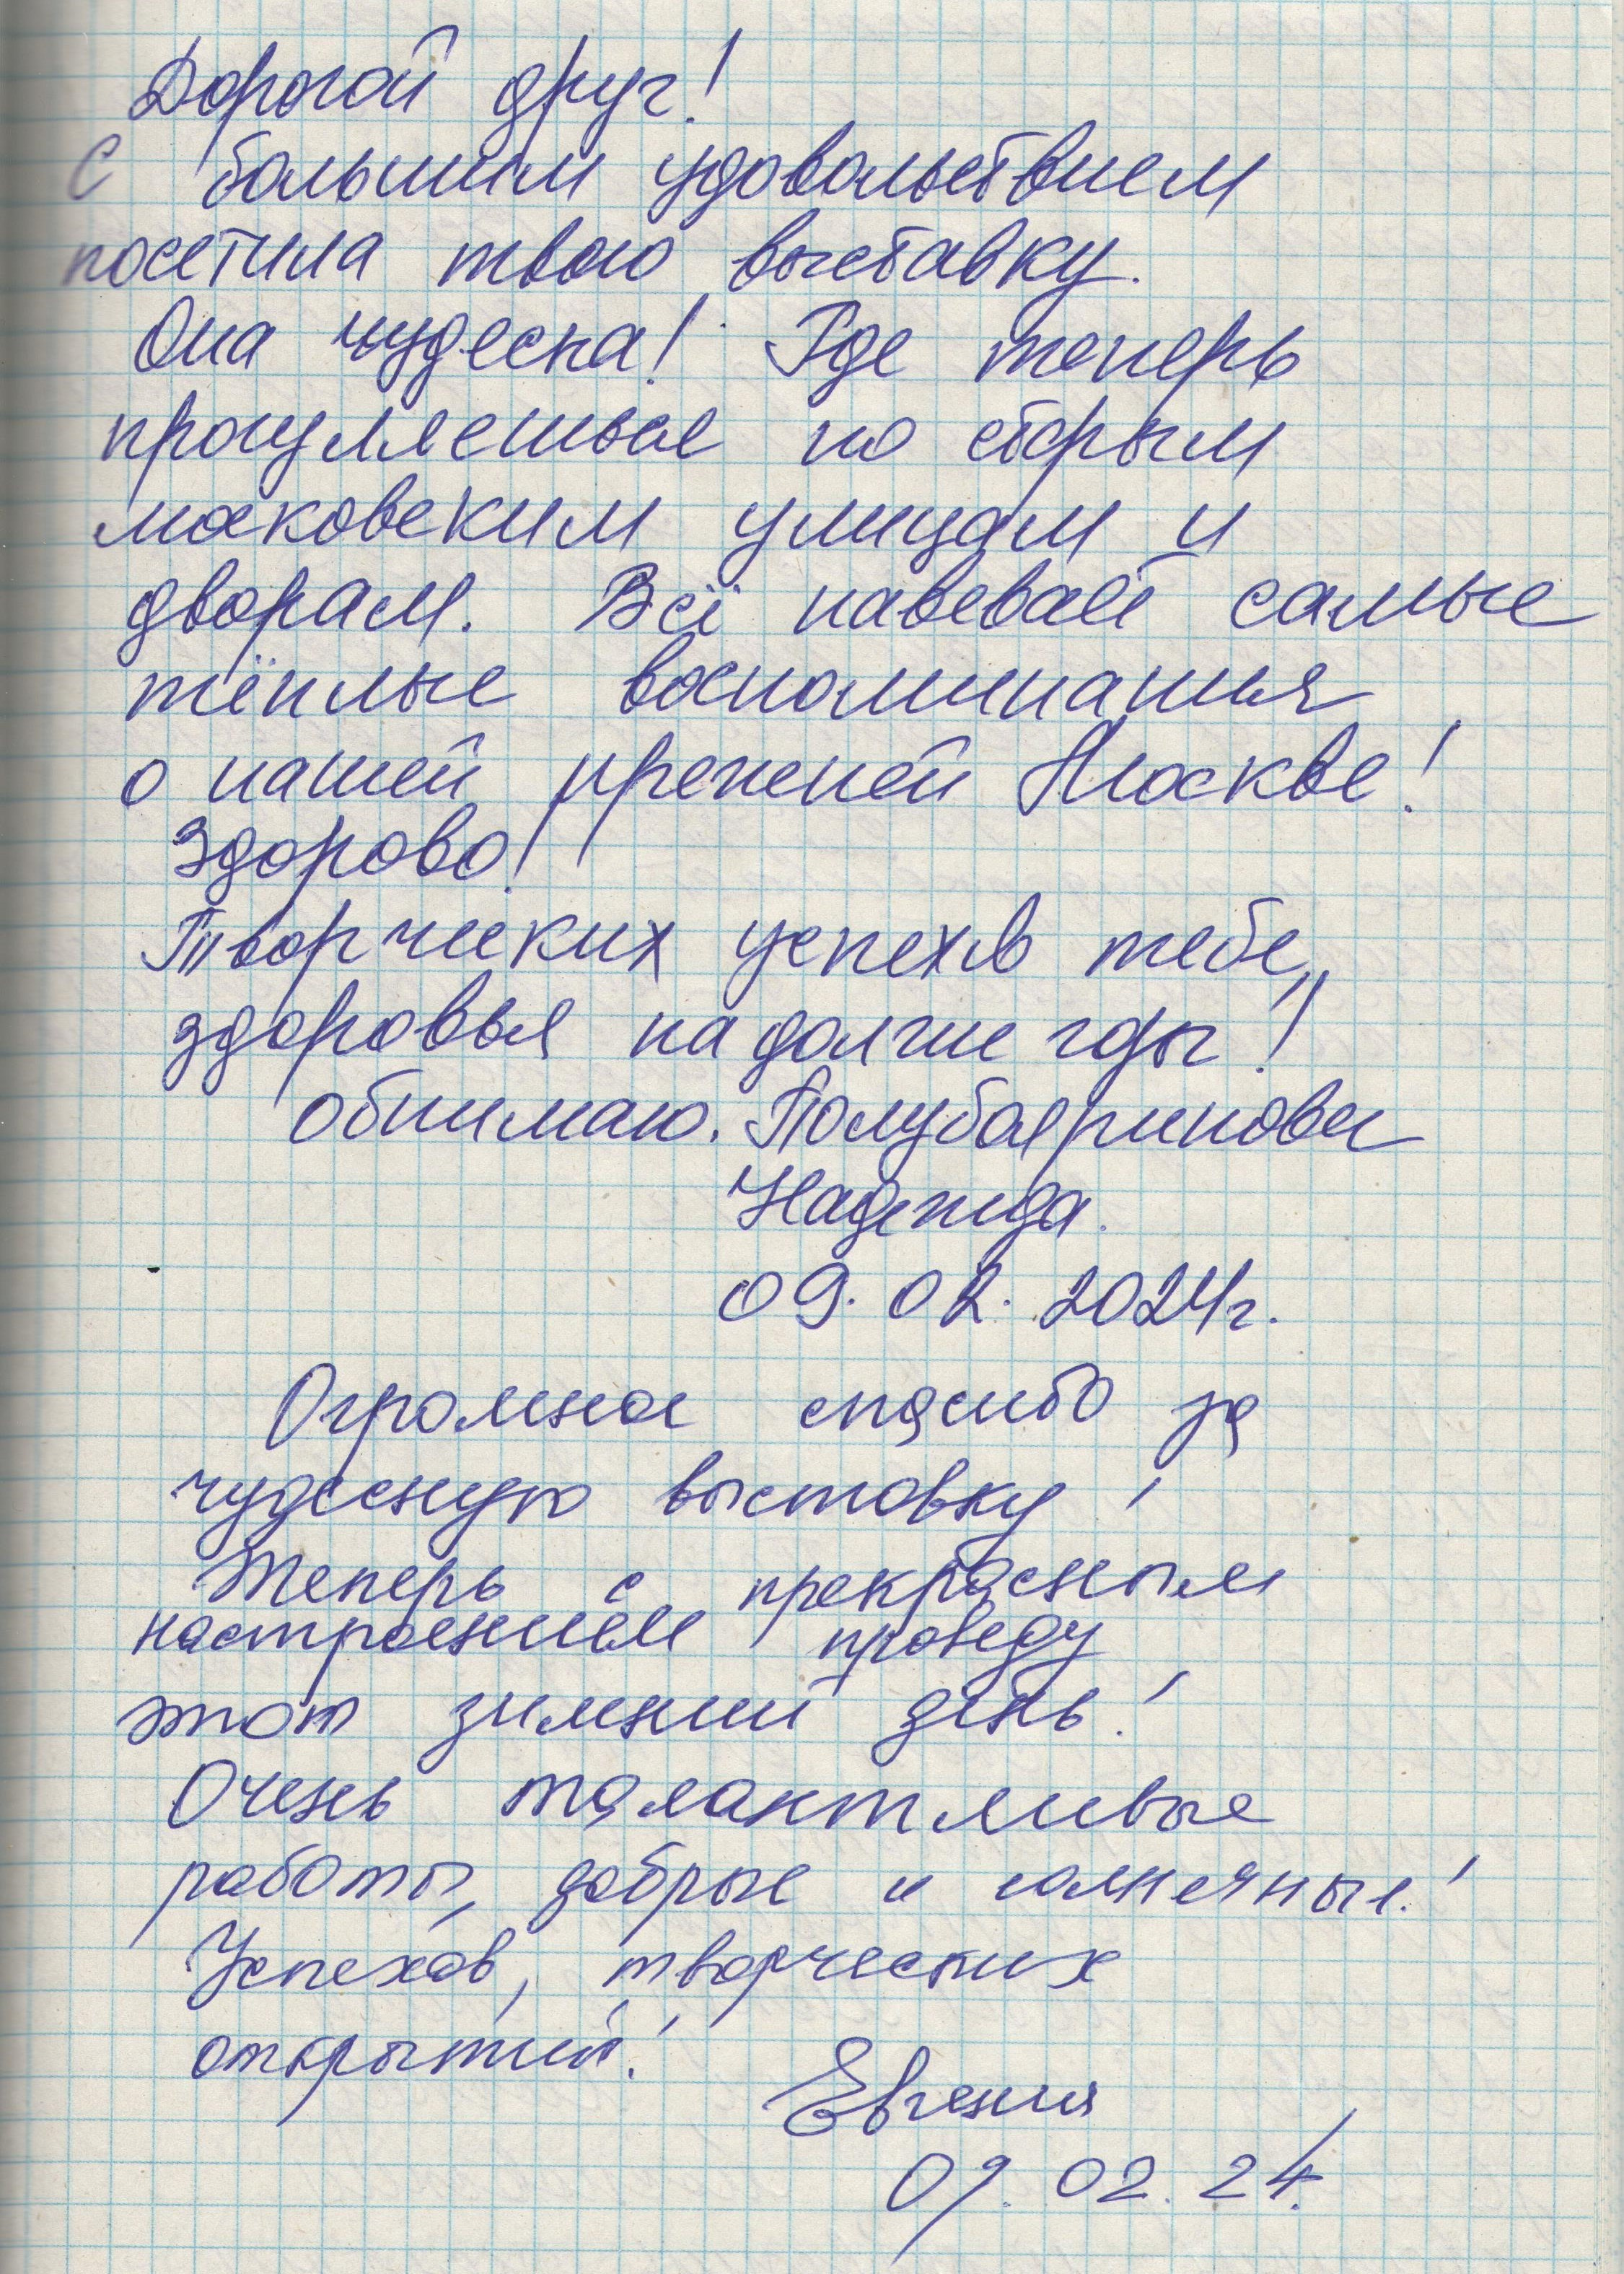 Дорогой друг!
С большим удовольствием
посетила твою выставку.
Она чудесна! Где теперь
прогуляешься по старым
московским улицам и
дворам. Всё навевает самые
тёплые воспоминания
о нашей прежней Москве!
Здорово!
Творческих успехов тебе,
здоровья на долгие годы!
Обнимаю. Полубояринова
Надежда.
09.02.2024г.
Огромное спасибо за
чудесную выставку!
Теперь с прекрасным
настроением проведу
этот зимний день!
Очень талантливые
работы, добрые и солнечные!
Успехов, творческих
открытий!
Евгения
09.02.24.